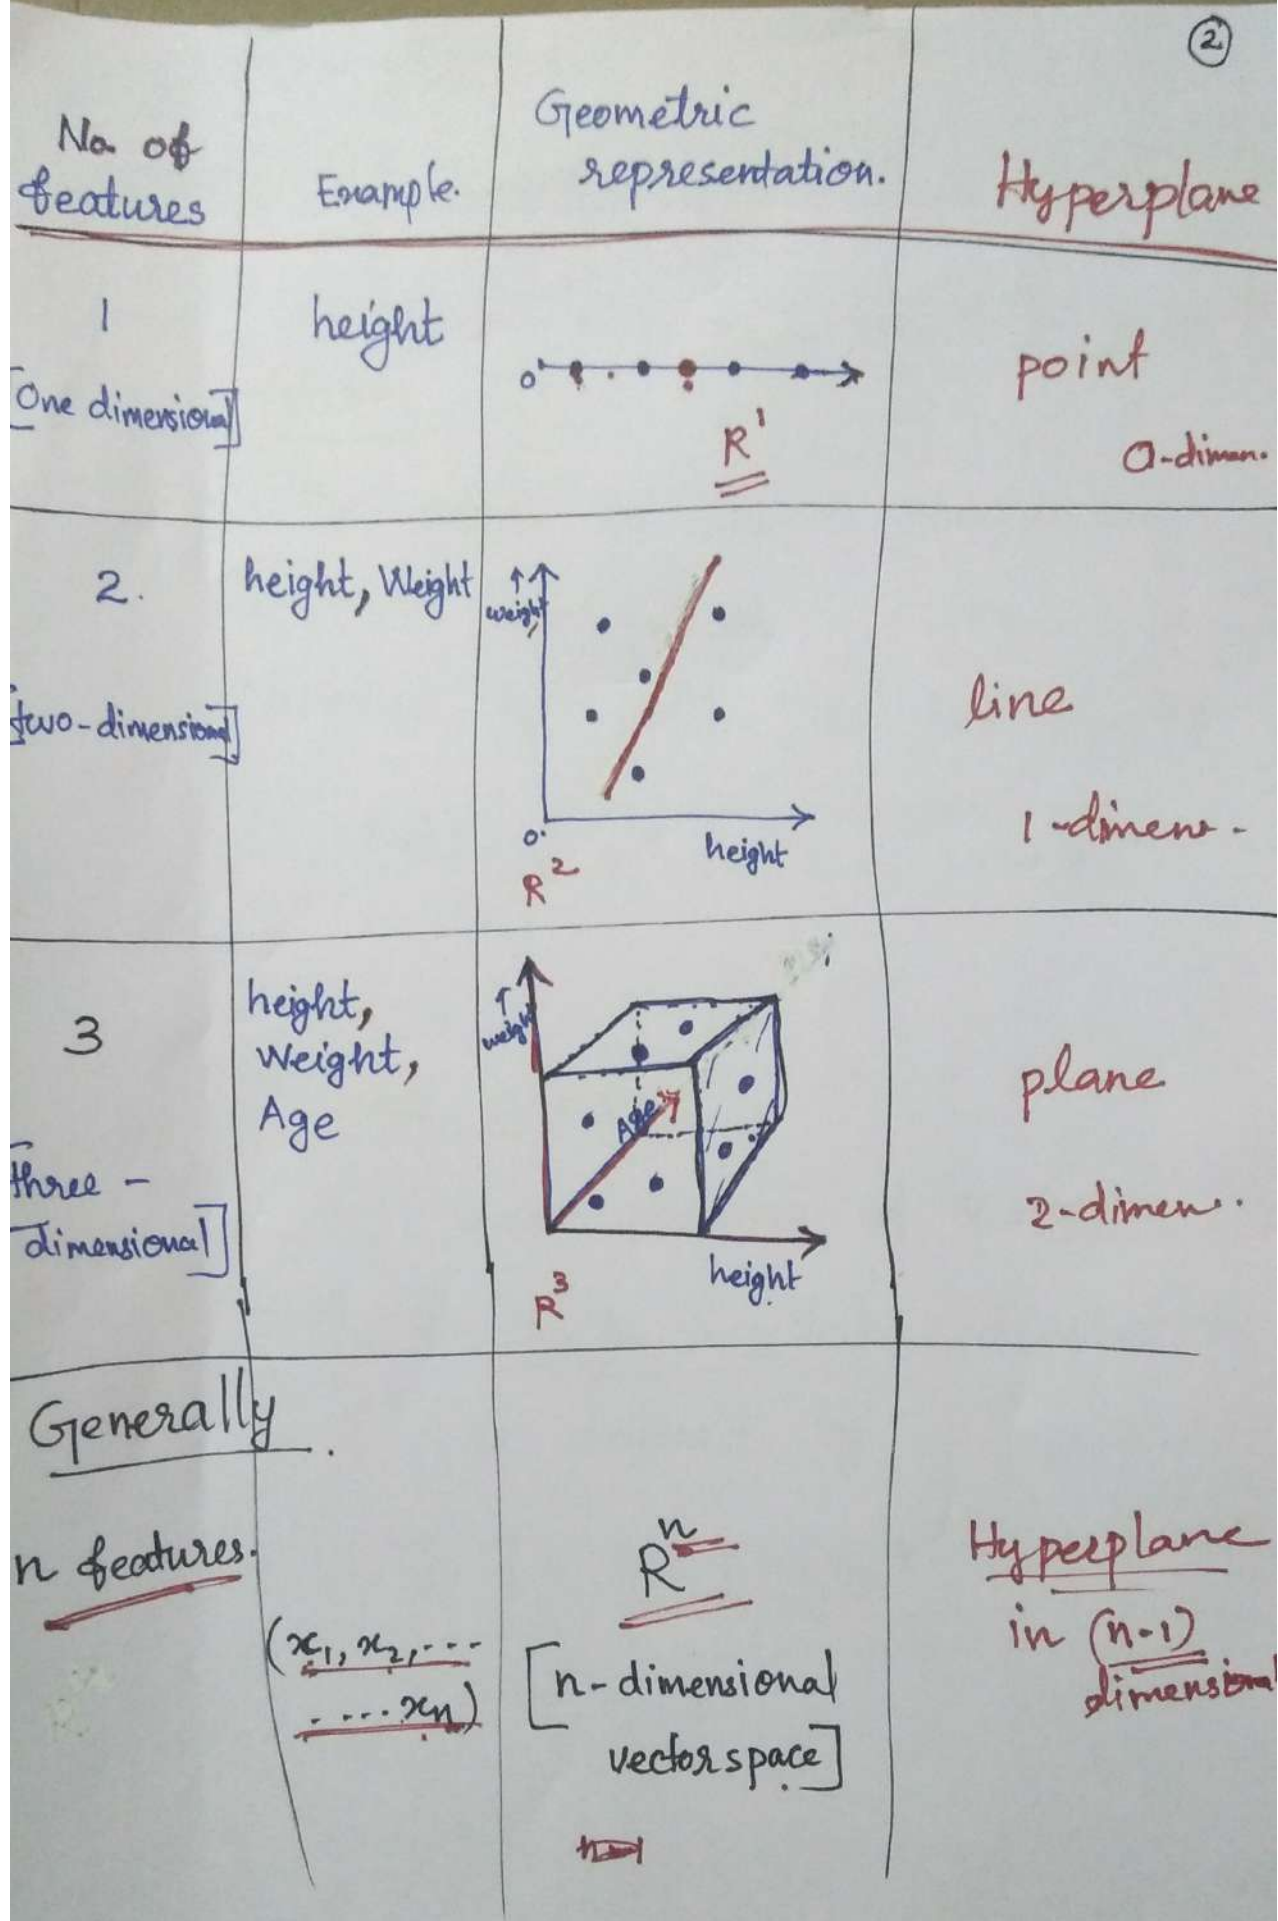 2
No. of
features
Example.
Geometric
representation.
Hyperplane
1
[One dimensional]
height
0
R¹
point
0-dimen.
2.
[two-dimensional]
height, Weight
↑
weight
0
height
R²
line
1-dimen.
3
[three-
dimensional]
height,
Weight,
Age
↑
weight
Age
height
R³
plane
2-dimen.
Generally
n features.
(x₁, x₂, ....
.... xn)
Rⁿ
[n-dimensional
vector space]
Hyperplane
in (n-1)
dimensional